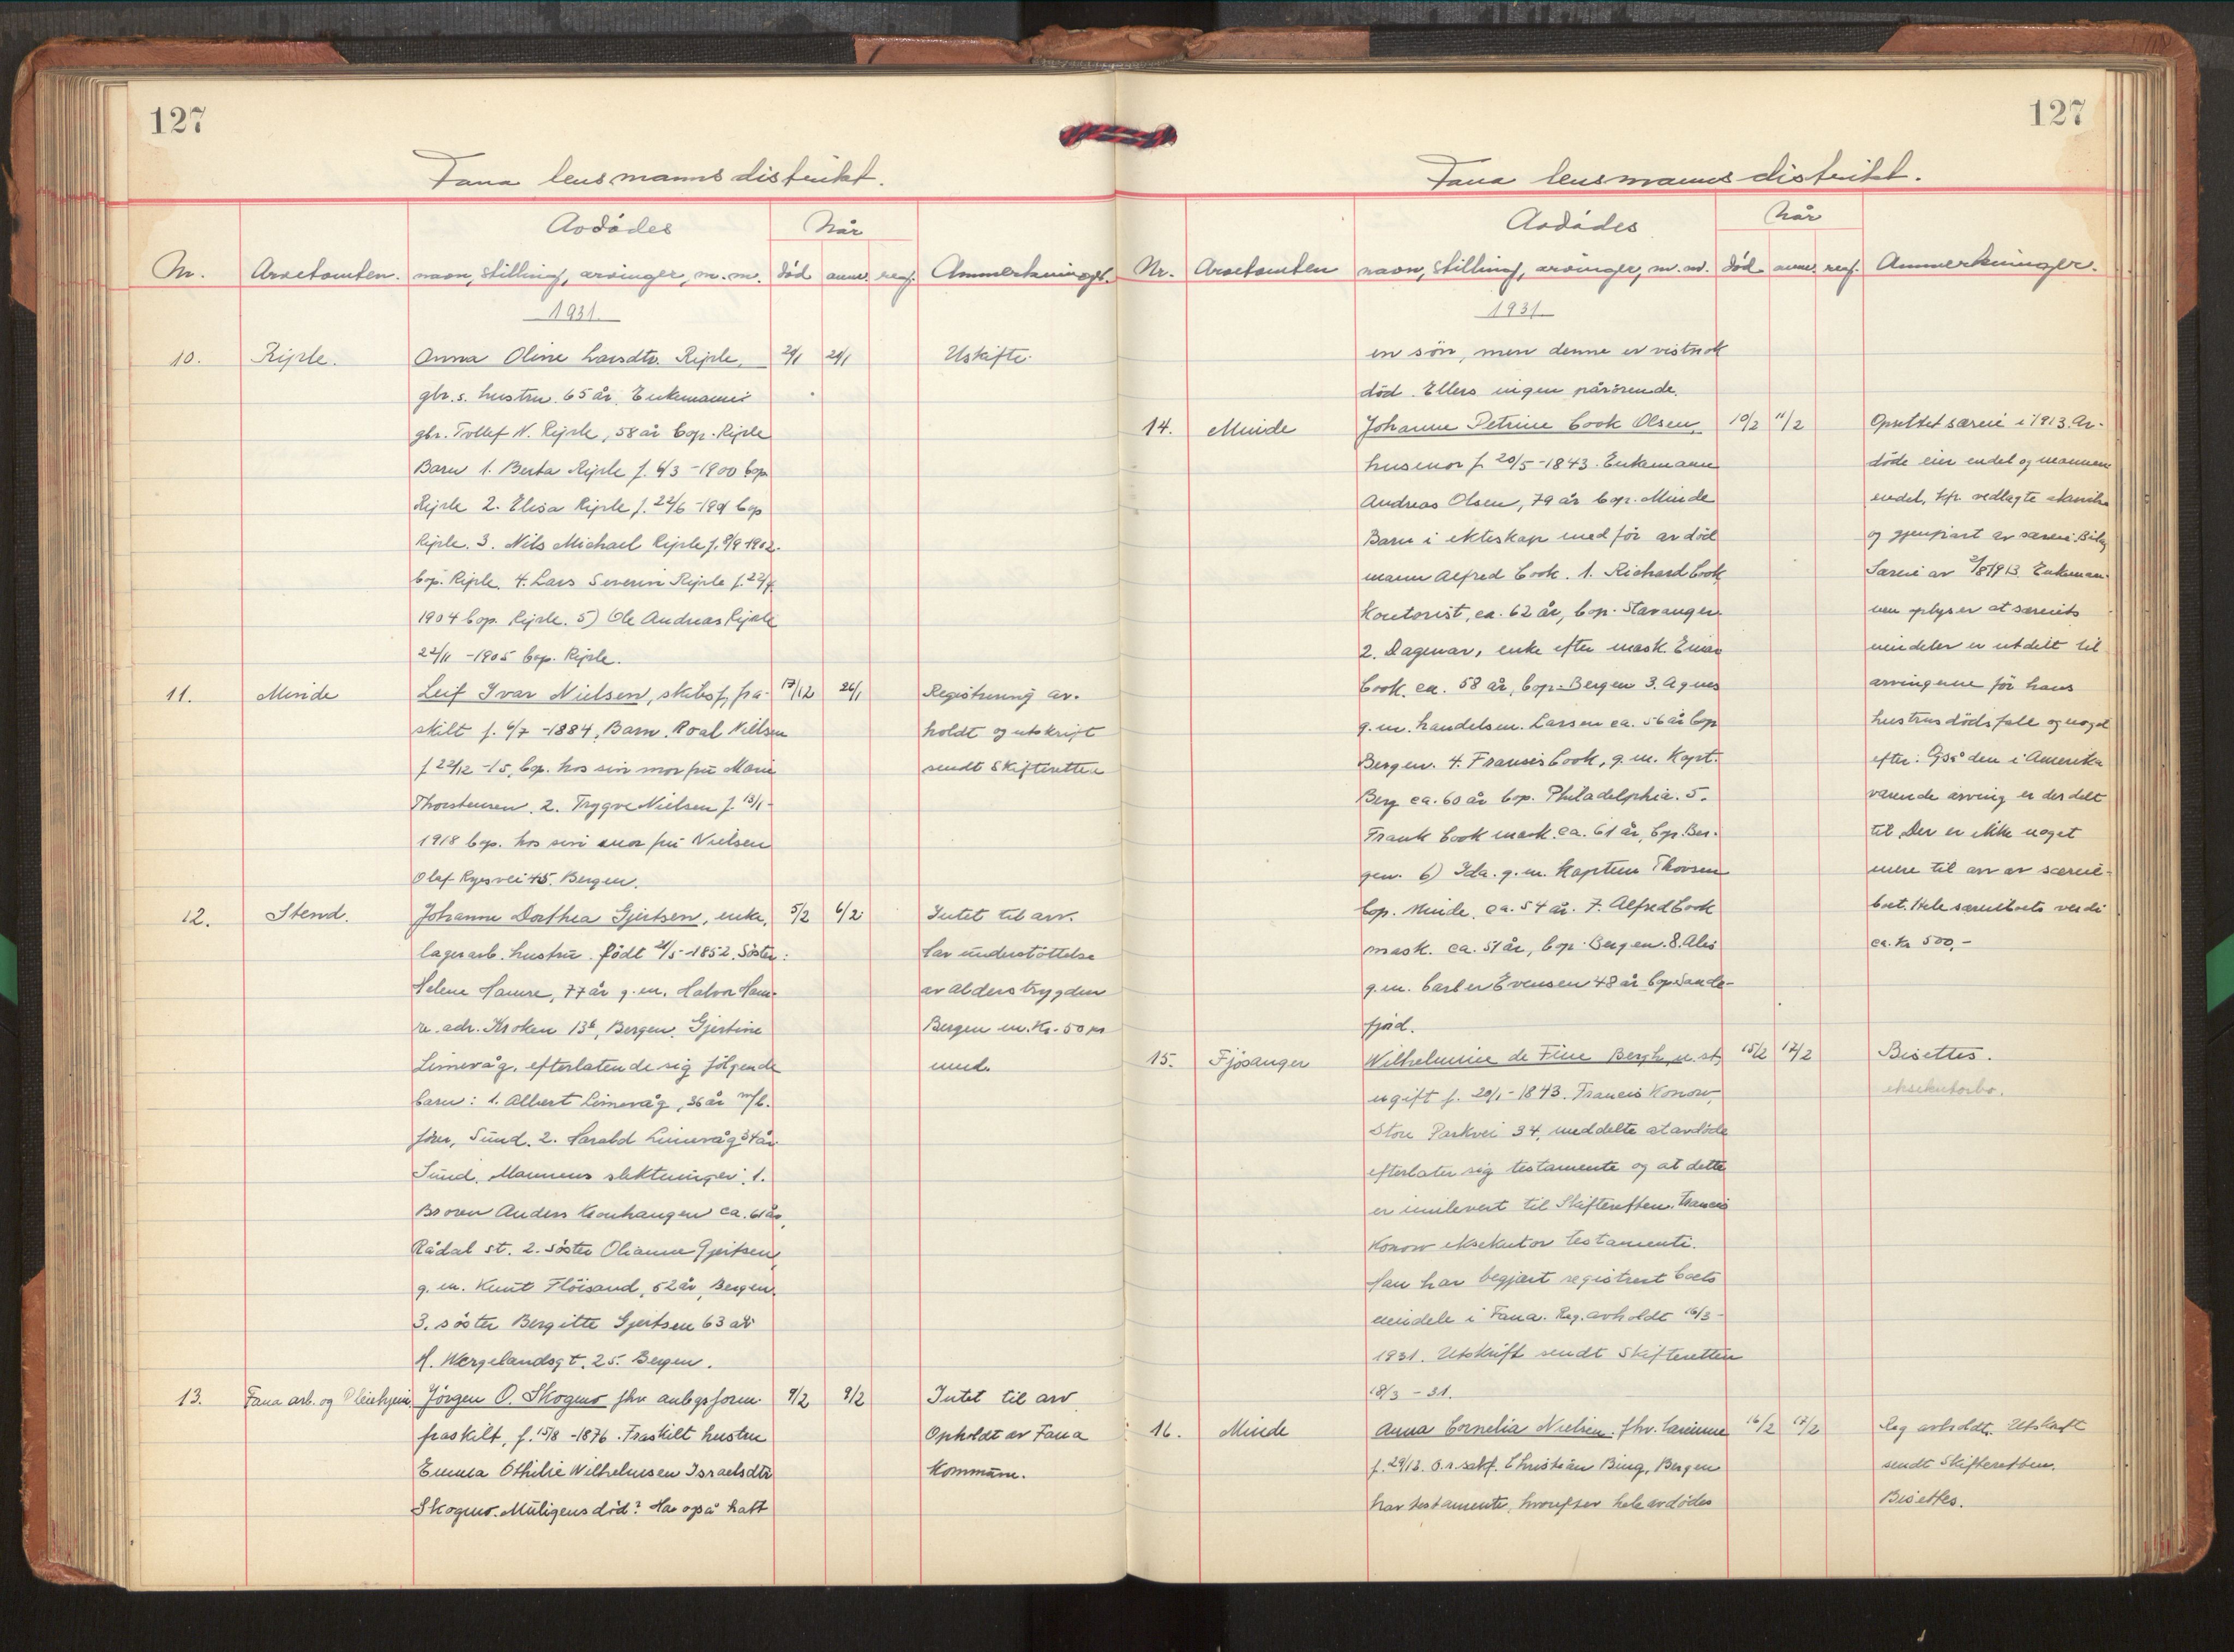 127
Fana lensmannsdistrikt.
Avdødes
Når
Nr. Arvetomten. navn, stilling, arvinger, m.m. død anm. reg. Anmerkninger.
1931.
10. Riple. Anna Oline Larsdtr. Riple, 21/1 Uskifte.
gbr.s. hustru 65 år. Enkemann:
gbr. Tollef N. Riple, 58 år bop. Riple
Barn 1. Berta Riple f. 6/3 - 1900 bop
Riple 2. Elisa Riple f. 22/6 - bop
Riple. 3. Nils Michael Riple f. 9/9 1902.
bop. Riple. 4. Lars Severin Riple f.
1904 bop. Riple. 5) Ole Andreas Riple
22/11 - 1905 bop. Riple.
11. Minde Leif Ivar Nielsen, skibsf, fra- 17/12 26/1 Registrering av-
skilt f. 6/7 - 1884. Barn. Roal Nielsen holdt og utskrift
f. 22/12 - 15, bop. hos sin mor fru Marie sendt Skifteretten
Thorstensen. 2. Trygve Nielsen f. 13/1 -
1918 bop. hos sin mor fru Nielsen
Olaf Ryesvei 45. Bergen.
12. Stend. Johanne Dorthea Gjertsen, enke, 5/2 6/2 Intet til arv.
lagerarb. hustru. født 21/5 - 1852. Søster: Har understøttelse
Helene Hamre, 77 år g.m. Halvor Ham- av alderstrygden
re adr. Kroken 13b, Bergen. Gjertine Bergen m. Kr. 50 pr
Limevåg, efterlatende sig følgende mnd.
barn: 1. Albert Limevåg, 36 år m/b.
fører, Sund. 2. Harald Limevåg 34 år
Sund. Mannens slektninger: 1.
Broren Anders ca. 61 år,
Rådal st. 2. søster Olianne Gjertsen
g.m. Knut Fløisand, 52 år, Bergen.
3. søster Bergitte Gjertsen 63 år
H. Wergelandsgt. 25. Bergen.
13. Fana arb. og Pleiehjem. Jørgen O. Skogmo fhv. anlegsform. 9/2 9/2 Intet til arv
fraskilt, f. 15/8 - 1876. Fraskilt hustru Opholdt av Fana
Emma Othilie Wilhelmsen Israelsdtr Kommune.
Skogmo. Muligens død? Har også hatt
127
Fana lensmannsdistrikt.
Avdødes
Når
Nr. Arvetomten navn, stilling, arvinger, m.m. død anm. reg. Anmerkninger.
1931
en søn, men denne er vistnok
død. Ellers ingen pårørende.
14. Minde Johanne Petrine Cook Olsen, 10/2 11/2 Oprettet særeie i 1913. Av-
husmor f. 20/5 - 1843. Enkemann døde eier endel og mannen
Andreas Olsen, 79 år bop. Minde endel, vedlagte
Barn i ekteskap med før avdød og gjenpart av særeie
mann Alfred Cook. 1. Richard Cook Særeie av 1913. Enkeman-
Kontorist, ca. 62 år, bop. Stavanger. nen oplyser at særeiets
2. Dagmar, enke efter mask. Einar eiendeler er utdelt til
Cook. ca. 58 år, bop. Bergen 3. Agnes arvingene før hans
g.m. handelsm. Larsen ca. 56 år bop hustrus dødsfall og noget
Bergen. 4. Francis Cook, g.m. Kapt. efter. Også den i Amerika
Berg ca. 60 år bop. Philadelphia. 5. værende arving er der delt
Frank Cook mask. ca. 61 år, bop. Ber- til. Der er ikke noget
gen. 6) Ida. g.m. Kaptein Thorsen mere til arv av særeie-
bop. Minde, ca. 54 år. 7. Alfred Cook boet. Hele særeieboets verdi
mask. ca. 51 år, bop. Bergen. 8. ca. kr 500,-
g.m. barber Evensen 48 år bop Sande-
fjord.
15. Fjøsanger Wilhelmine de Fine Bergh, 15/2 17/2 Bisettes.
ugift f. 20/1 - 1843. Francis Konow, eksekutorbo.
Store Parkvei 34, meddelte at avdøde
efterlater sig testamente og at dette
er innlevert til Skifteretten. Francis
Konow eksekutor testamenti.
Han har begjært registrert boets
eiendele i Fana. Reg. avholdt 16/3 -
1931. Utskrift sendt Skifteretten
18/3 - 31.
16. Minde Anna Cornelia Nielsen. fhv. lærerinne 16/2 17/2 Reg avholdt. Utskrift
f. O.r.sakf. Christian Bing, Bergen sendt Skifteretten.
har testamente, hvorefter hele avdødes Bisettes.